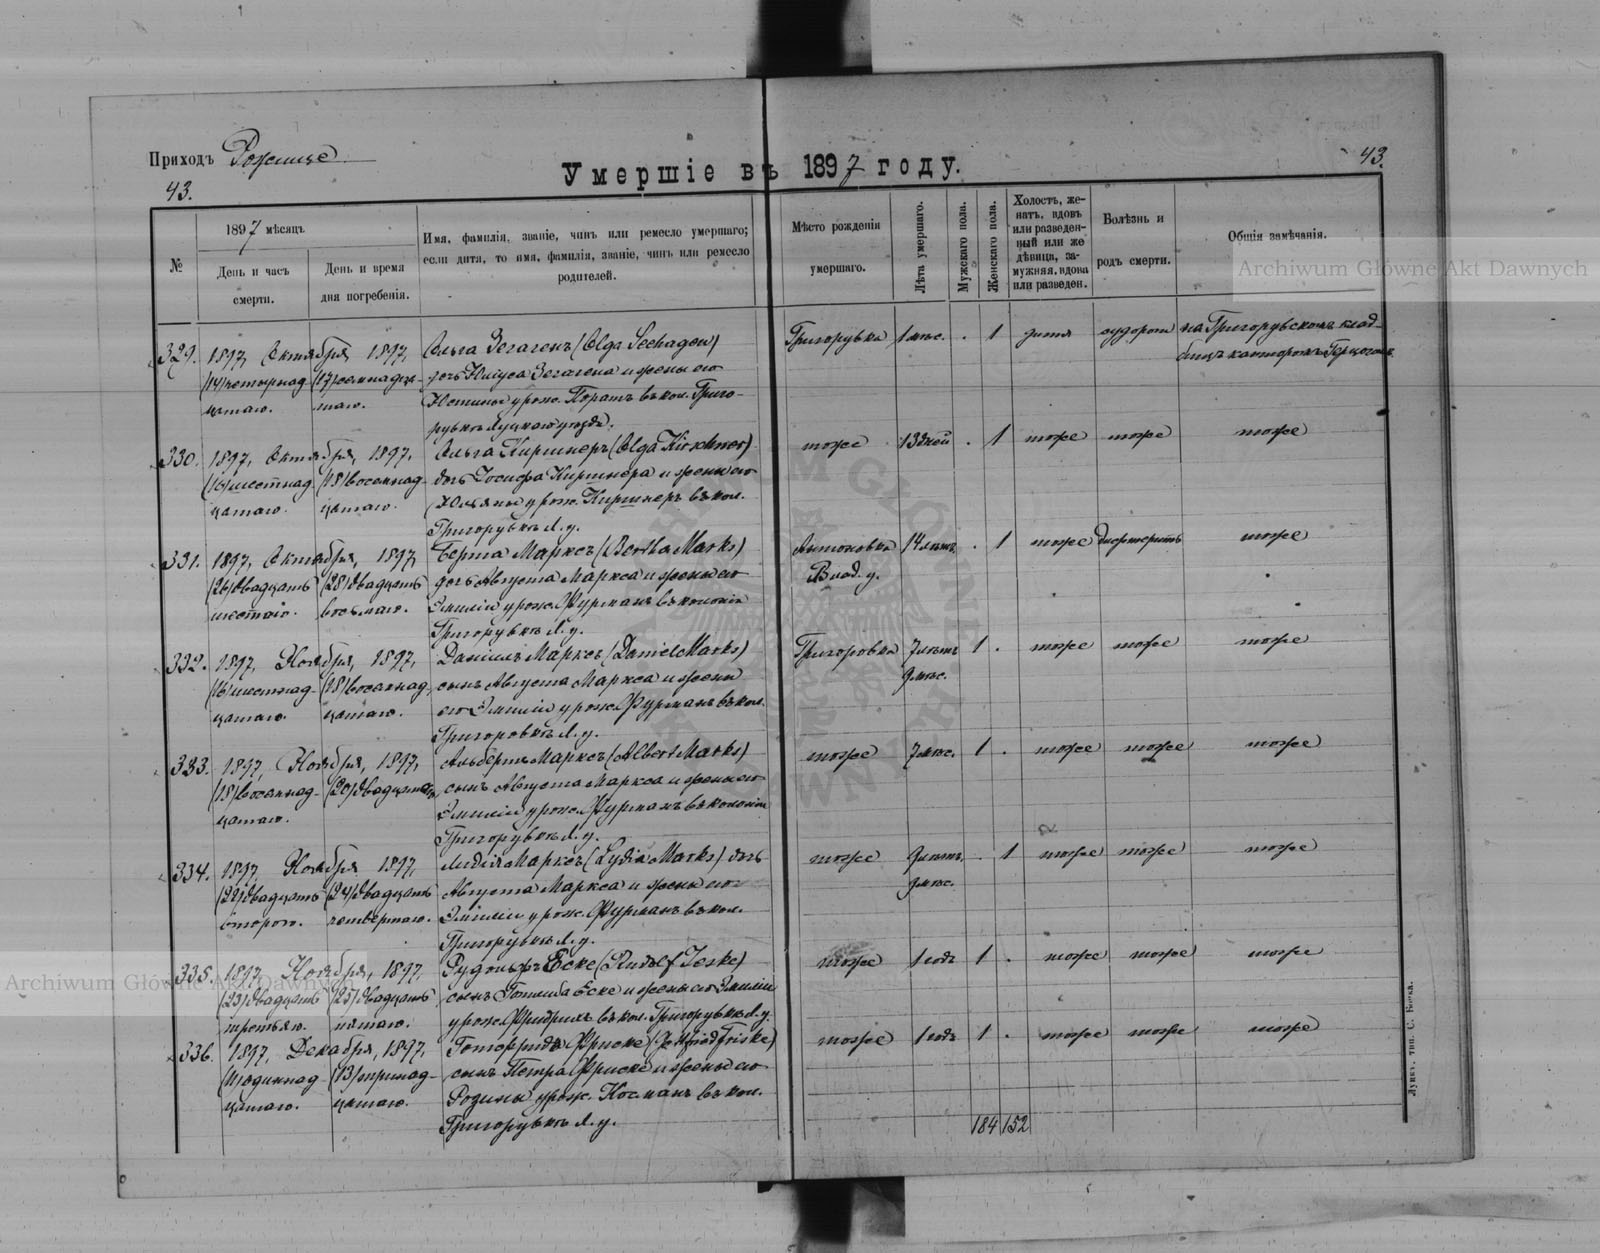 Приходъ Рожище
Умершіе въ 1897 году.
43.
43.
№
1897 мѣсяцъ
День и часъ смерти.
День и время дня погребенія.
Имя, фамилія, званіе, чинъ или ремесло умершаго;
если дитя, то имя, фамилія, званіе, чинъ или ремесло
родителей.
Мѣсто рожденія
умершаго.
Лѣта умершаго.
Мужскаго пола.
Женскаго пола.
Холостъ, же-
натъ, вдовъ
или разведен-
ный или же
дѣвица, за-
мужняя, вдова
или разведен.
Болѣзнь и
родъ смерти.
Общія замѣчанія.
Archiwum Główne Akt Dawnych
329. 1897, Октября, 1897, Ольга Зегагенъ (Olga Seehagen) Григорувка 1 мѣс. . 1 дитя судороги на Григорувскомъ клад-
(14) четырнад- (17) семнадца- дочь Юліуса Зегагена и жены его бищѣ канторомъ
цатаго. таго. урож. въ кол. Григо-
рувкѣ Луцкаго уѣзда.
330. 1897, Октября, 1897, Ольга Киршнеръ (Olga Kirschner) тоже 13 дней . 1 тоже тоже тоже
(16) шестнад- (18) восемнад- дочь Іосифа Киршнера и жены его
цатаго. цатаго. Юльяны урож. Киршнеръ въ кол.
Григорувкѣ Л. у.
331. 1897, Октября, 1897, Берта Марксъ (Bertha Marks) Антоновка 14 лѣтъ . 1 тоже дифтеритъ тоже
(26) двадцать (28) двадцать дочь Августа Маркса и жены его Влад. у.
шестаго. восьмаго. Эмиліи урож. Фурманъ въ колоніи
Григорувкѣ Л. у.
332. 1897, Ноября, 1897, Даніилъ Марксъ (Daniel Marks) Григоровка 7 лѣтъ 1 . тоже тоже тоже
(16) шестнад- (18) восемнад- сынъ Августа Маркса и жены 9 мѣс.
цатаго. цатаго. его Эмиліи урож. Фурманъ въ кол.
Григоровкѣ Л. у.
333. 1897, Ноября, 1897, Альбертъ Марксъ (Albert Marks) тоже 7 мѣс. 1 . тоже тоже тоже
(18) восемнад- (20) двадцатаго сынъ Августа Маркса и жены его
цатаго. Эмиліи урож. Фурманъ въ колоніи
Григорувкѣ Л. у.
334. 1897, Ноября 1897, Лидія Марксъ (Lydia Marks) дочь тоже лѣтъ . 1 тоже тоже тоже
(22) двадцать (24) двадцать Августа Маркса и жены его 9 мѣс.
втораго. четвертаго. Эмиліи урож. Фурманъ въ кол.
Григорувкѣ Л. у.
335. 1897, Ноября, 1897, Рудольфъ Еске (Rudolf Jeske) тоже 1 годъ 1 . тоже тоже тоже
(23) двадцать (25) двадцать сынъ Готлиба Еске и жены его Эмиліи
третьяго. пятаго. урож. Фридрихъ въ кол. Григорувкѣ Л. у.
336. 1897, Декабря, 1897, Готфридъ Фриске (Gottfried Friske) тоже 1 годъ 1 . тоже тоже тоже
(11) одиннад- (13) тринад- сынъ Петра Фриске и жены его
цатаго. цатаго. урож. въ кол.
Григорувкѣ Л. у.
184 152
Archiwum Główne Akt Dawnych
Луцкъ, тип. С. Бокка.